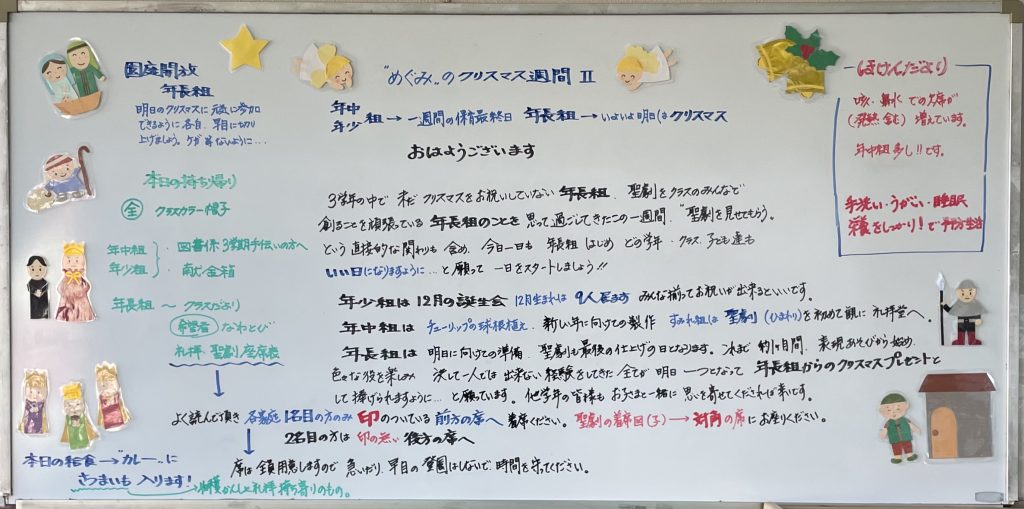 園庭開放
年長組
明日のクリスマスに元気に参加
できるように各自、早目に切り
上げましょう。ケガ等ないように…
本日の持ち帰り
全 クラスカラー帽子
年中組 ・図書保 3学期手伝いの方へ
年少組 ・献金箱
年長組 〜 クラスだより
希望者 なわとび
礼拝 聖劇座席表
"めぐみ"のクリスマス週間 II
年中
年少 組→一週間の保育最終日 年長組→いよいよ明日はクリスマス
おはようございます
3学年の中で 未だ クリスマスをお祝いしていない 年長組、聖劇をクラスのみんなで
創ることを頑張っている 年長組のことを 思って過ごしてきたこの一週間、"聖劇を見せてもらう。
という 直接的な関わりも 含め、今日一日も 年長組 はじめ どの学年・クラス、子ども達も
いい日になりますように…と願って 一日をスタートしましょう!!
年少組は12月の誕生会 12月生まれは 9人居ます みんな揃ってお祝いが出来るといいです。
年中組は チューリップの球根植え、新しい年に向けての製作 すみれ組は 聖劇(ひまわり)を初めて観に 礼拝堂へ。
年長組は 明日に向けての準備、聖劇も最後の仕上げの日となります。これまで 約1ヶ月間、表現あそびから始め、
色々な役を楽しみ 決して一人では 出来ない 経験をしてきた 全てが 明日 一つとなって 年長組からのクリスマスプレゼントと
して 捧げられますように…と願っています。他学年の皆様も お気持ち一緒に 思いを寄せてくだされば幸いです。
よく読んで頂き 各家庭 1名目の方のみ 印のついている 前方の席へ 着席ください。聖劇の着席図(子)→対角の席にお座りください。
2名目の方は 印の無い 後方の席へ
席は全員用意しますので 急いだり、早目の登園はしないで、時間を守ってください。
本日の給食→"カレー"に
さつまいも 入ります!→収穫かんしゃ礼拝 持ち寄りのもの。
ほけんだより
咳・鼻水での欠席が
(発熱含む) 増えています。
年中組多し!!です。
手洗い・うがい・睡眠
栄養をしっかり!で予防生活